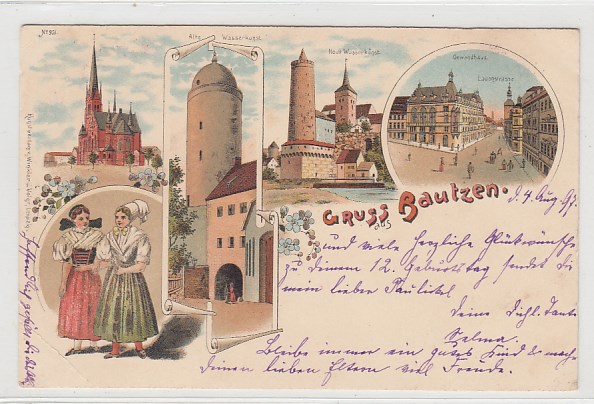 No 951
Alte Wasserkunst.
Neue Wasserkunst.
Gewandhaus.
Lauengrasse.
Gruss aus Bautzen.
d. 4 Aug. 97.
und viele herzliche Glückwünsche
zu deinem 12. Geburtstag sendet dir
mein lieber Paulikel
Deine Dichl. Tante
Selma.
Bleibe immer ein gutes Kind & mache
Deinen lieben Eltern viel Freude.